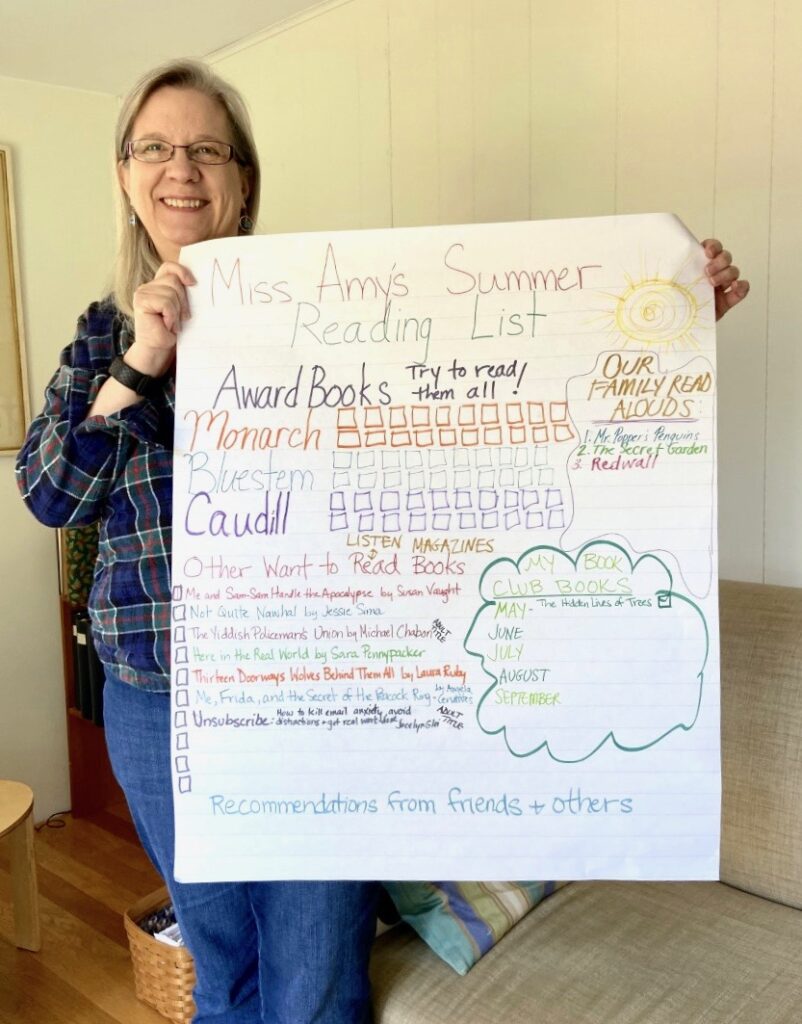 Miss Amy's Summer
Reading List
Award Books Try to read
them all!
Monarch
Bluestem
Caudill
OUR
FAMILY READ
ALOUDS:
1. Mr. Popper's Penguins
2. The Secret Garden
3. Redwall
LISTEN MAGAZINES
Other Want to Read Books
Me and Sam-Sam Handle the Apocalypse by Susan Vaught
Not Quite Narwhal by Jessie Sima
The Yiddish Policeman's Union by Michael Chabon ADULT
TITLE
Here in the Real World by Sara Pennypacker
Thirteen Doorways Wolves Behind Them All by Laura Ruby
Me, Frida, and the Secret of the Peacock Ring - by Angela
Cervantes
Unsubscribe: How to kill email anxiety, avoid
distractions + get real work done Jocelyn Glei
ADULT
TITLE
MY BOOK
CLUB BOOKS
MAY - The Hidden Lives of Trees
JUNE
JULY
AUGUST
SEPTEMBER
Recommendations from friends + others